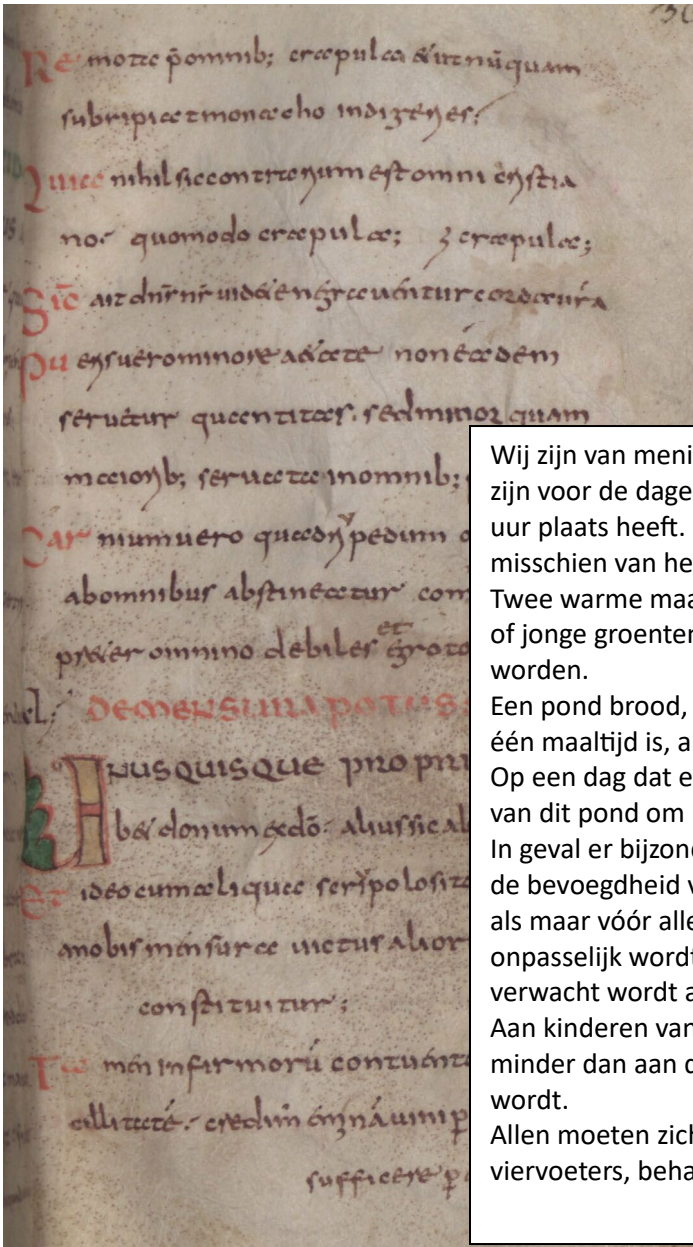 Remote p̄ omnib; crapula & ut nūquam
subripiat monacho indigeries;
Quia nihil sic contrarium est omni c̄rstia
no· quomodo crapula; 
Sic ait dn̄r nr̄ uid&e ne graventur corda ur̄a
Pueris uero minore ad&ate non eadem
seruetur quantitas· sed minor quam
maiorib; seruata in omnib;
Carnium uero quadrupedum
ab omnibus abstineatur com
praeter omnino debiles et egroto
DE MENSURA POTUS
UNUSQUISQUE PROPRI
b& donum ex dō· alius sic al
Et ideo cum aliqua scripolosita
a nobis mensura uictus alior
constituitur;
Tamen infirmorū contuente
cillitate· credim̄ eminā uini p
sufficere p
Wij zijn van meni
zijn voor de dage
uur plaats heeft.
misschien van he
Twee warme maa
of jonge groenter
worden.
Een pond brood,
één maaltijd is, a
Op een dag dat e
van dit pond om
In geval er bijzond
de bevoegdheid v
als maar vóór alle
onpasselijk wordt
verwacht wordt a
Aan kinderen van
minder dan aan d
wordt.
Allen moeten zich
viervoeters, beha